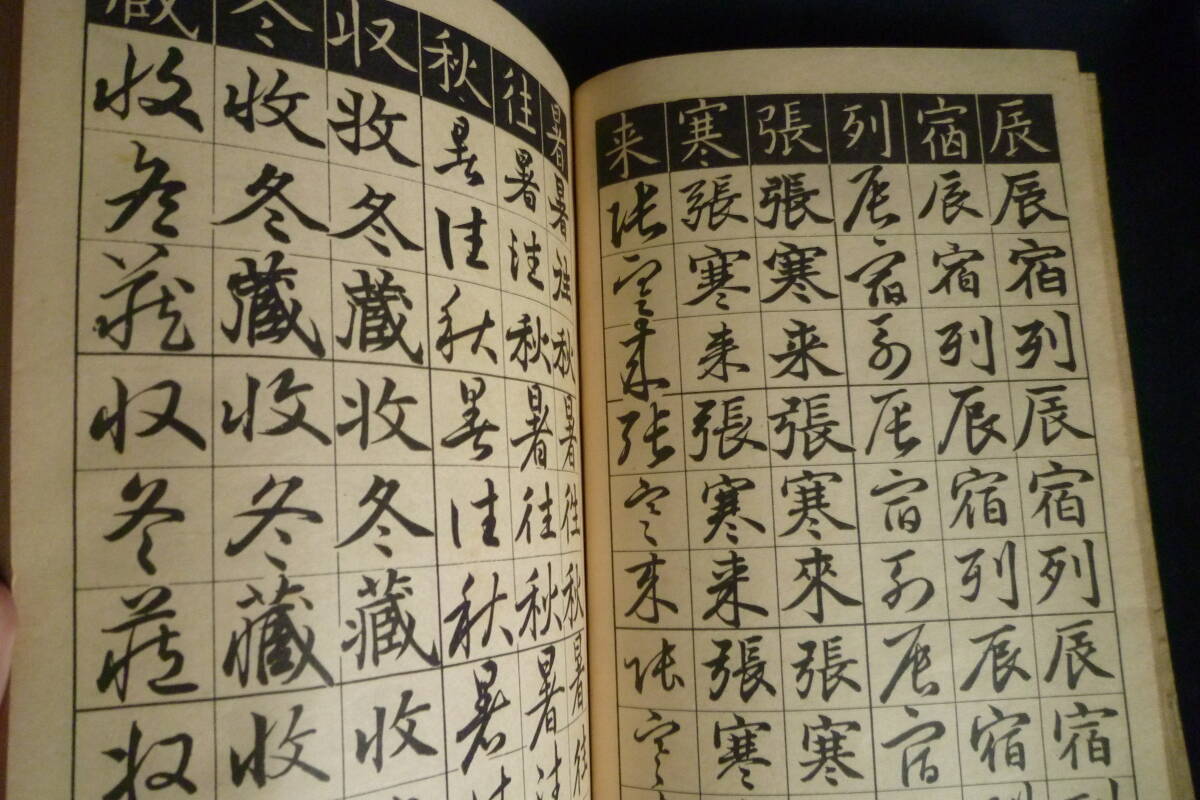 辰辰宿列辰宿列辰宿
宿辰宿列辰宿列辰宿列
列辰宿列辰宿列辰宿
張張寒来張寒來張寒
寒張寒来張寒来張寒
来張寒来張寒来張寒
暑暑往秋暑往秋暑往
往暑往秋暑往秋暑往
秋暑往秋暑往秋暑往
収收冬藏收冬藏收
冬收冬藏收冬藏收
藏收冬藏収冬藏収